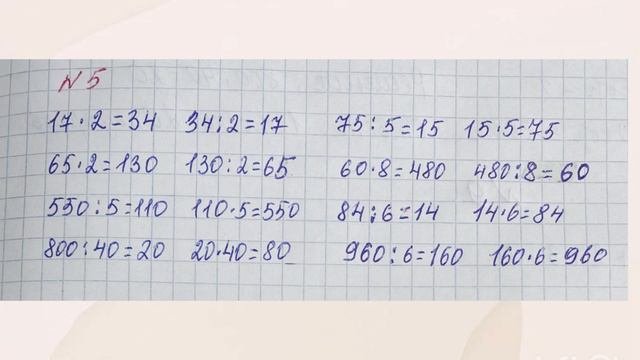 N 5
17·2=34 34:2=17 75:5=15 15·5=75
65·2=130 130:2=65 60·8=480 480:8=60
550:5=110 110·5=550 84:6=14 14·6=84
800:40=20 20·40=80 960:6=160 160·6=960